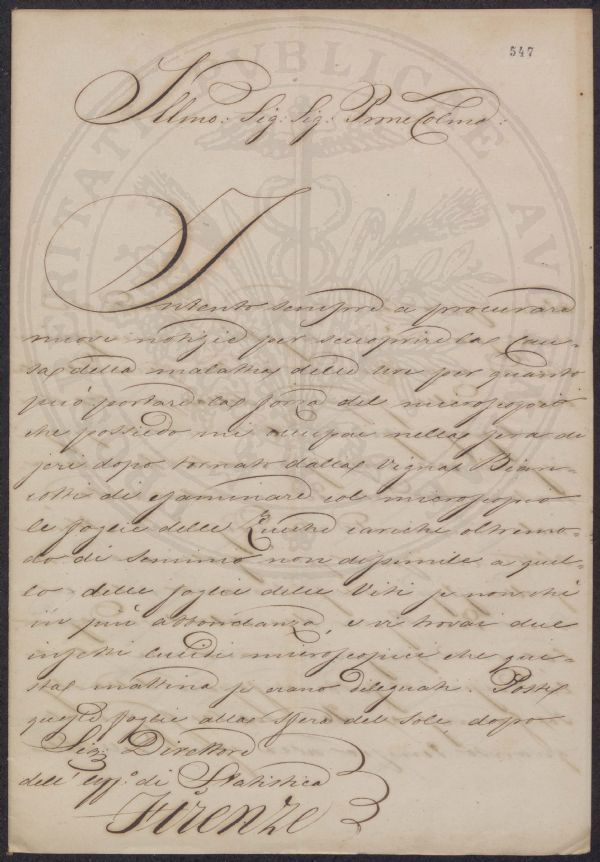 547
Illmo: Sig: Sig: Prone Colmo:
Intento sempre a procurare
nuove notizie per scuoprire la cau-
sa della malattia delle Uve per quanto
può portare la forza del microscopio
che possiedo mi occupai nella sera di
jeri dopo tornato dalla Vigna Bian-
cotti di esaminare col microscopio
le foglie delle Zucche cariche oltremo-
do di seminio non dissimile a quel-
lo delle foglie delle Viti se non che
in più abbondanza, e vi trovai due
insetti lucidi microscopici che que-
sta mattina si erano dileguati. Postes
queste foglie alla sfera del Sole dopo
Sig: Direttore
dell' Uff.º di Statistica
Firenze